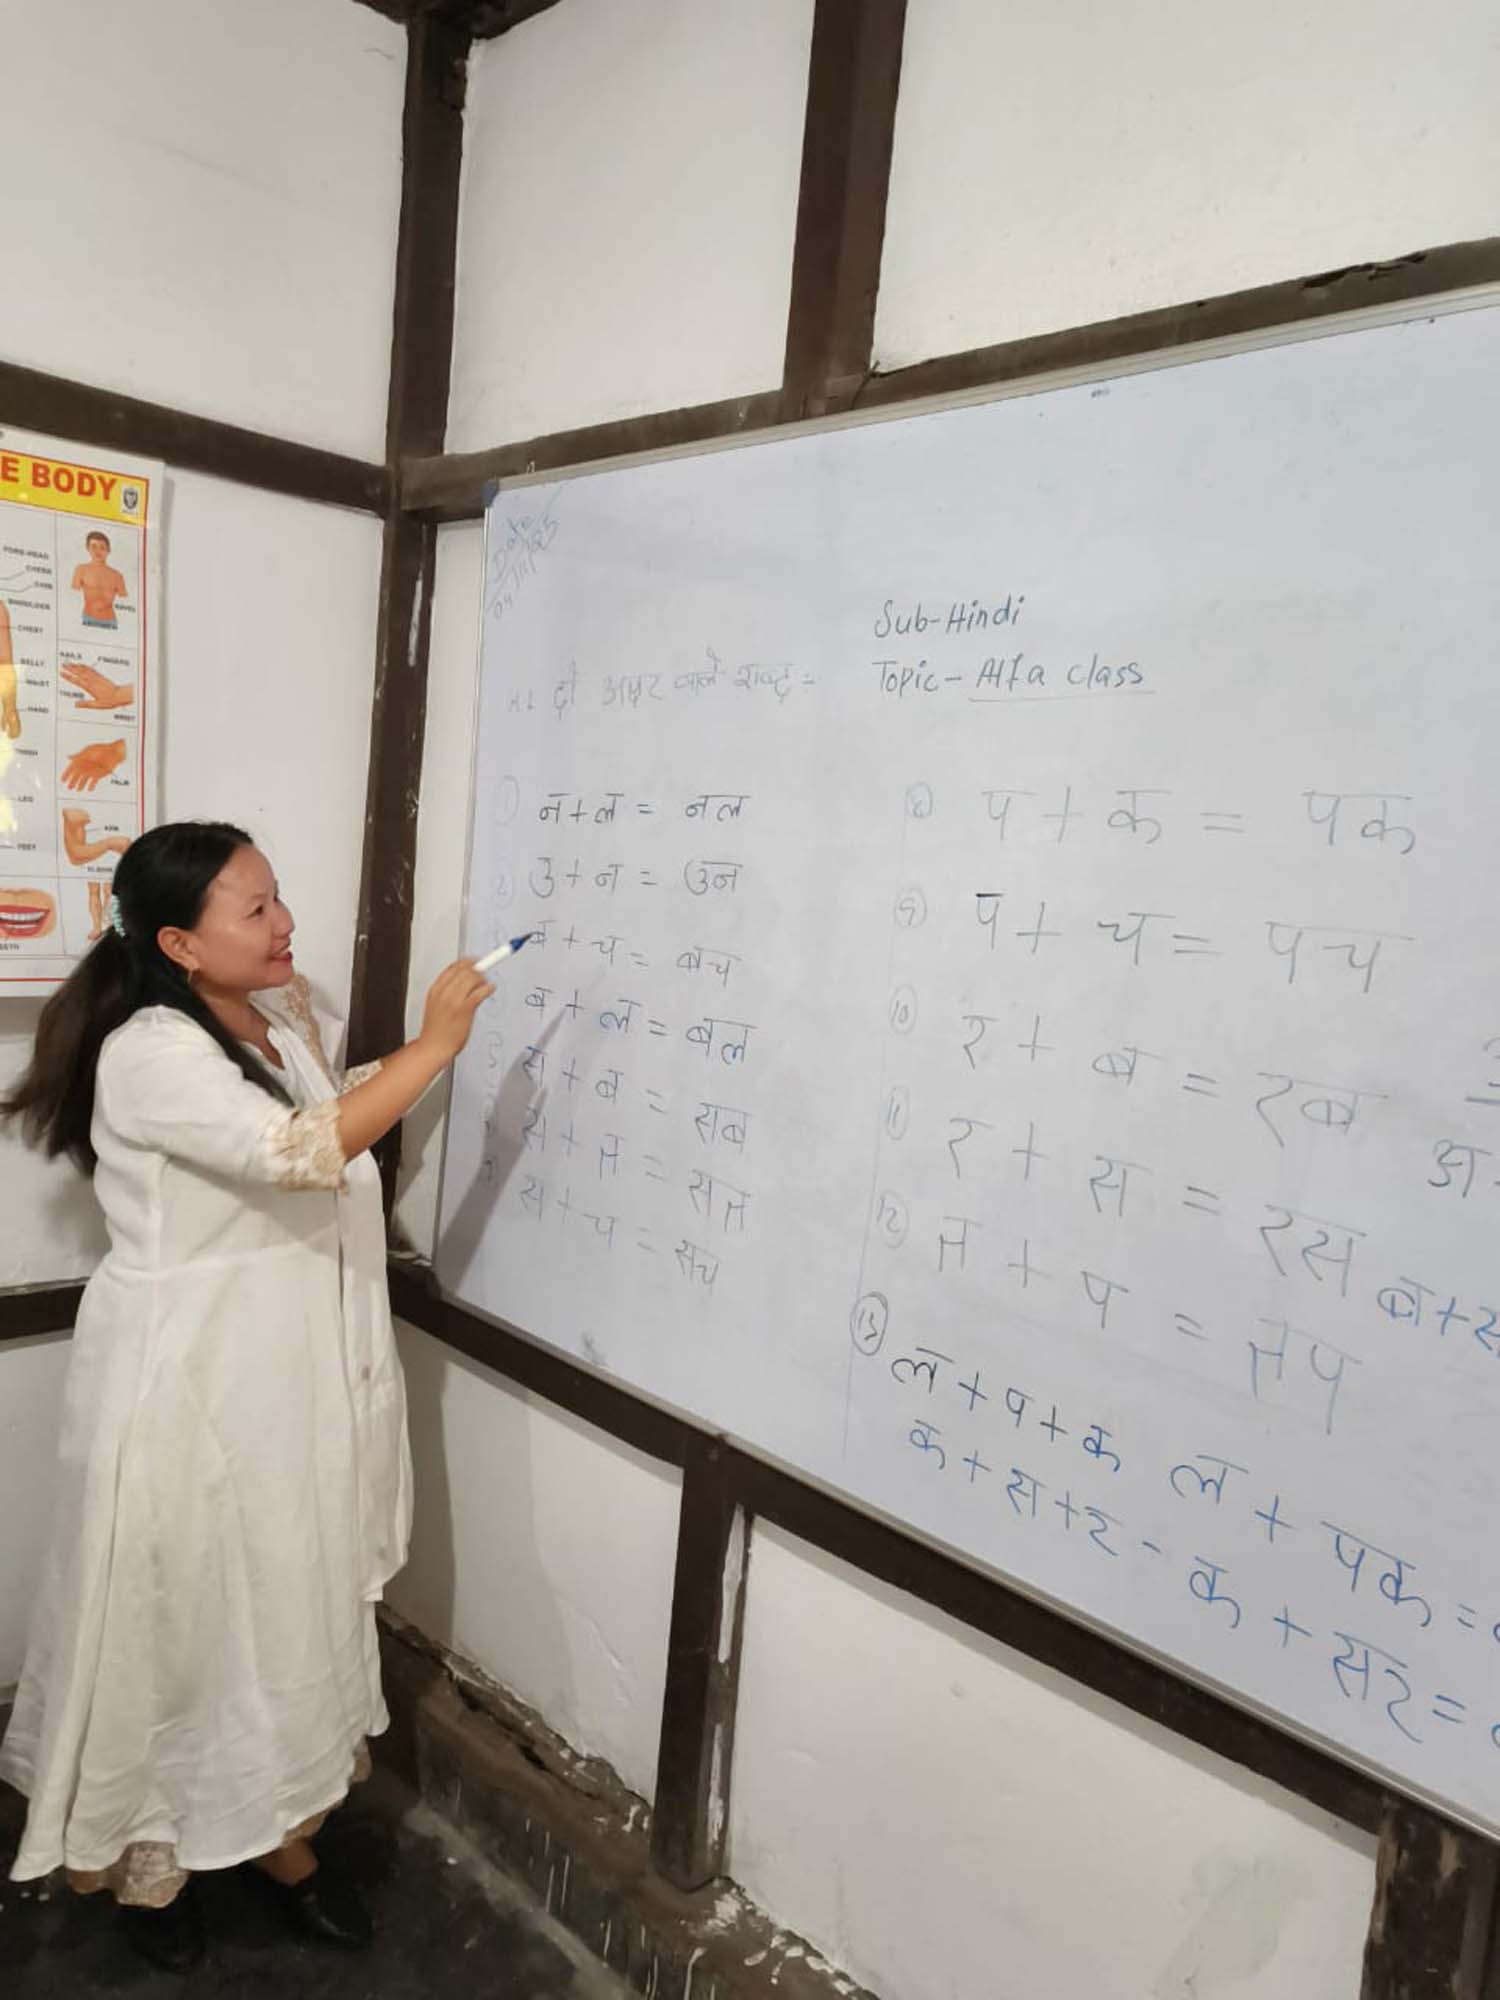 E BODY
FORE-HEAD
CHEEK
CHIN
SHOULDER
CHEST
BELLY
WAIST
HAND
THIGH
LEG
FEET
NAVEL
ABDOMEN
NAILS
FINGERS
THUMB
WRIST
PALM
ARM
ELBOW
TEETH
Date
04/11/25
Sub-Hindi
Topic- Alfa class
दो अक्षर वाले शब्द =
① न+ल = नल
② उ+न = उन
ब+च = बच
ब+ल = बल
स+ब = सब
स+त = सत
स+च = सच
⑧ प+क = पक
⑨ प+च = पच
⑩ र+ब = रब
⑪ र+स = रस
⑫ त+प = तप
⑬ ल+प+क ल+पक =
क+स+र - क+सर =
अ
ब+स